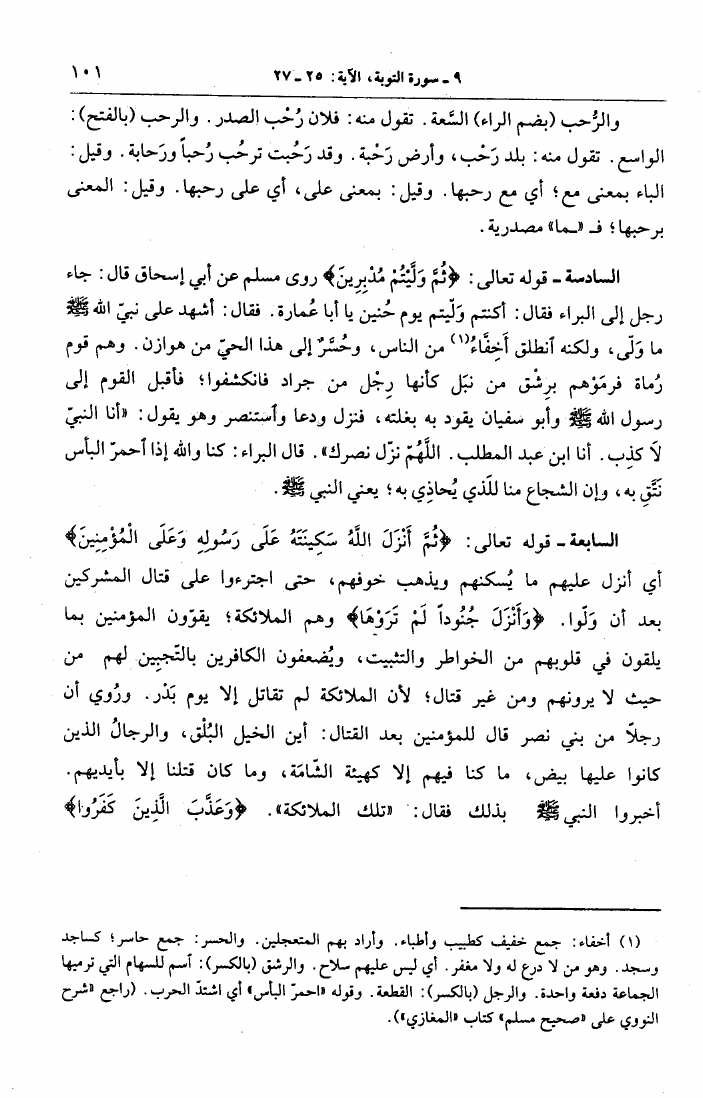 ٩ ـ سورة التوبة، الآية: ٢٥ ـ ٢٧
١٠١
والرُّحب (بضم الراء) السَّعة. تقول منه: فلان رُحْب الصدر. والرحب (بالفتح):
الواسع. تقول منه: بلد رَحْب، وأرض رَحْبة. وقد رَحُبت ترحُب رُحباً ورَحابة. وقيل:
الباء بمعنى مع؛ أي مع رحبها. وقيل: بمعنى على، أي على رحبها. وقيل: المعنى
برحبها؛ فـ «ـما» مصدرية.
السادسة ـ قوله تعالى: ﴿ثُمَّ وَلَّيْتُمْ مُدْبِرِينَ﴾ روى مسلم عن أبي إسحاق قال: جاء
رجل إلى البراء فقال: أكنتم وَلّيتم يوم حُنين يا أبا عُمارة. فقال: أشهد على نبيّ الله ﷺ
ما وَلّى، ولكنه ٱنطلق أَخِفَّاءُ(١) من الناس، وحُسَّرٌ إلى هذا الحيّ من هوازن. وهم قوم
رُماة فرمَوْهم بِرِشْق من نبَل كأنها رِجْل من جراد فانكشفوا؛ فأقبل القوم إلى
رسول الله ﷺ وأبو سفيان يقود به بغلته، فنزل ودعا وٱستنصر وهو يقول: «أنا النبيّ
لاَ كذِب. أنا ابن عبد المطلب. اللَّهُمّ نزّل نصرك». قال البراء: كنا والله إذا ٱحمرّ البأس
نَتَّقِ به، وإن الشجاع منا للّذي يُحاذِي به؛ يعني النبي ﷺ.
السابعة ـ قوله تعالى: ﴿ثُمَّ أَنْزَلَ اللَّهُ سَكِينَتَهُ عَلَى رَسُولِهِ وَعَلَى الْمُؤْمِنِينَ﴾
أي أنزل عليهم ما يُسكنهم ويذهب خوفهم، حتى اجترءوا على قتال المشركين
بعد أن وَلّوا. ﴿وَأَنْزَلَ جُنُوداً لَمْ تَرَوْهَا﴾ وهم الملائكة؛ يقوّون المؤمنين بما
يلقون في قلوبهم من الخواطر والتثبيت، ويُضعفون الكافرين بالتّجبِين لهم من
حيث لا يرونهم ومن غير قتال؛ لأن الملائكة لم تقاتل إلا يوم بَدْر. ورُوي أن
رجلاً من بني نصر قال للمؤمنين بعد القتال: أين الخيل البُلْق، والرجالُ الذين
كانوا عليها بيض، ما كنا فيهم إلا كهيئة الشّامَة، وما كان قتلنا إلا بأيديهم.
أخبروا النبي ﷺ بذلك فقال: «تلك الملائكة». ﴿وَعَذَّبَ الَّذِينَ كَفَرُوا﴾
(١) أخفاء: جمع خفيف كطبيب وأطباء. وأراد بهم المتعجلين. والحسر: جمع حاسر؛ كساجد
وسجد. وهو من لا درع له ولا مغفر. أي ليس عليهم سلاح. والرشق (بالكسر): ٱسم للسهام التي ترميها
الجماعة دفعة واحدة. والرجل (بالكسر): القطعة. وقوله «احمرّ البأس» أي اشتدّ الحرب. (راجع «شرح
النووي على «صحيح مسلم» كتاب «المغازي»).